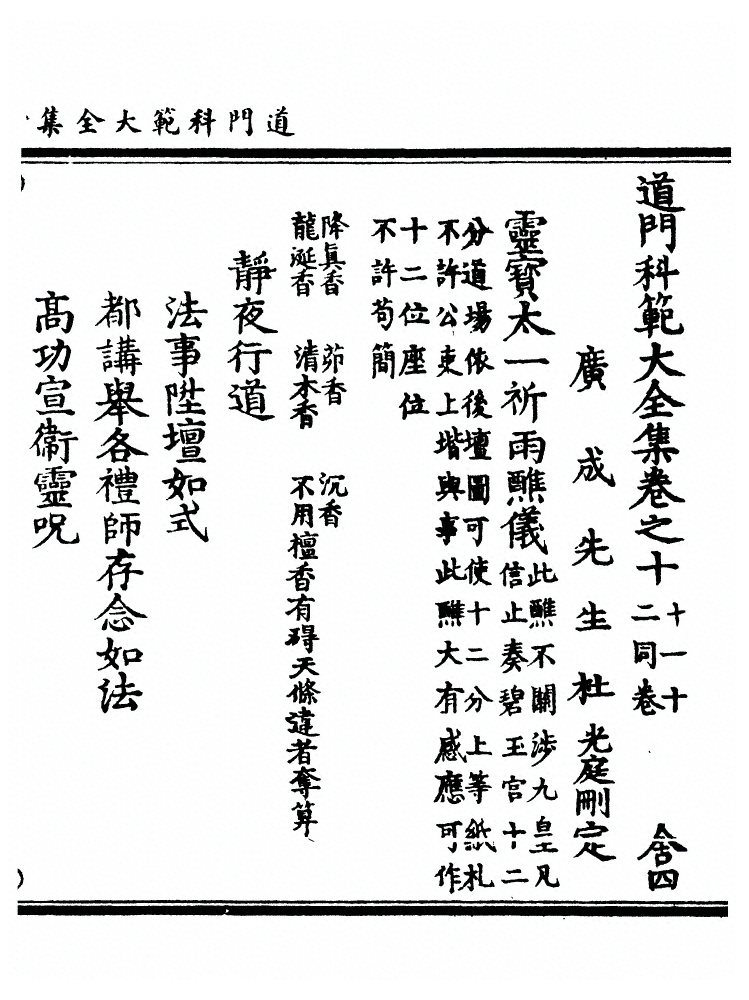 道門科範大全集
道門科範大全集卷之十 十一十 二同卷 舍四
廣成先生杜光庭刪定
靈寶太一祈雨醮儀 此醮不關涉九皇凡
信止奏碧玉宮十二
分道場依後壇圖可使十二分上等紙札
不許公吏上堦與事此醮大有感應可作
十二位座位
不許苟簡
降眞香 茆香 沉香
龍涎香 清木香 不用檀香有碍天條違者奪算
靜夜行道
法事陞壇如式
都講舉各禮師存念如法
高功宣衛靈呪